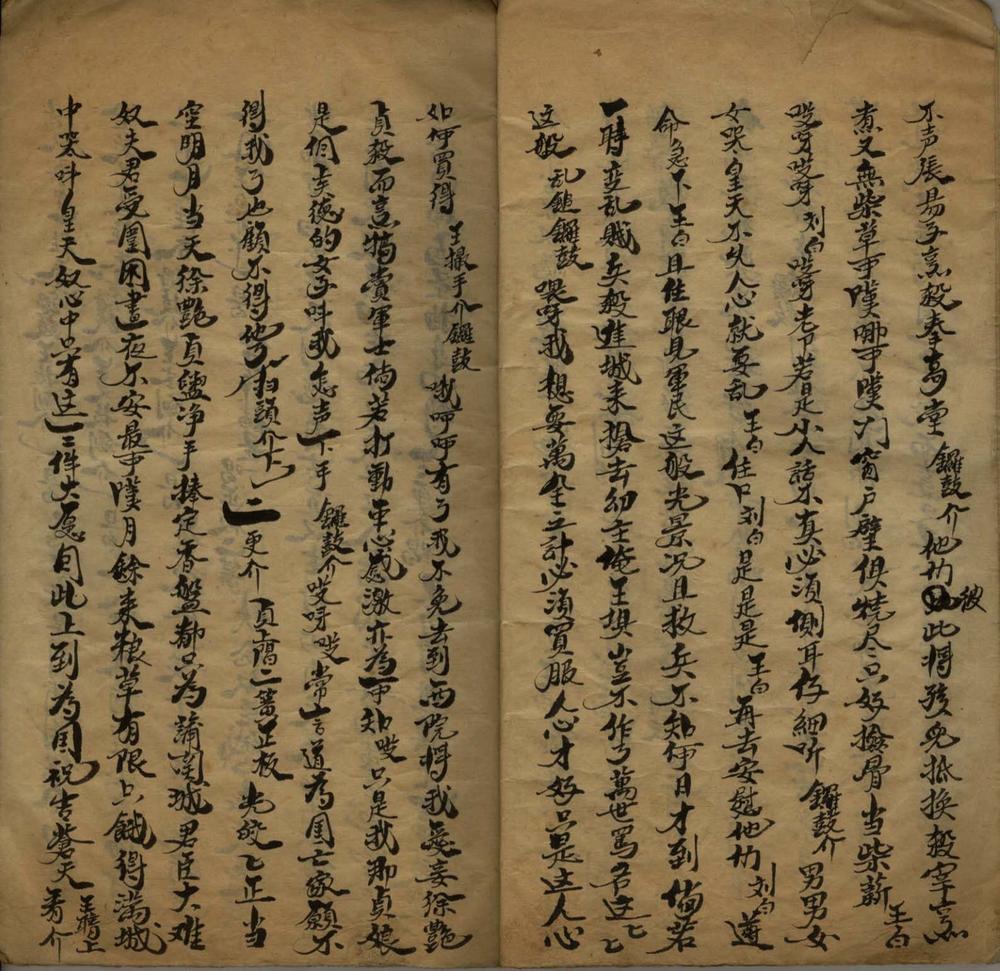 不声張易子烹殺奉高堂 鑼鼓介 他們彼此將孩兒抵換殺宰烹
煮又無柴草可嘆哪可嘆 门窗户壁俱燒尽只好撿骨当柴薪 王白
哎呀哎呀 刘白 哎呀老爷若是小人話不真必須側耳仔細听 鑼鼓介 男男女
女哭皇天不久人心就要乱 王白 住口 刘白 是是是 王白 再去安慰他們 刘白 遵
命急下 王白 且住眼見軍民这般光景况且救兵不知伊日才到倘若
一時变乱賊兵殺進城来搶去幼主俺王埧豈不作了萬世罵名这
这般 乱鎚鑼鼓 哎呀我想要萬全之計必須買服人心才好只是这人心
如何買得 王撮手介鑼鼓 哦呀呀有了我不免去到西院將我爱妾徐艷
貞殺而烹犒賞軍士倘若打動軍心感激亦為可知哎只是我那貞娘
是個美德的女子叫我怎声下手 鑼鼓介 哎呀哎 常言道為国亡家顧不
得我了也顧不得他了 扫頭介下 二更介 貞扇二簧正板 光皎乙正当
空明月当天徐艷貞鹽净手捧定香盤都只為 城君臣大难
奴夫君受圍困晝夜不安最可嘆月餘来粮草有限只餓得滿城
中哭叫皇天奴心中只有这一件大愿自此上到為国祝告蒼天 王暗上看介